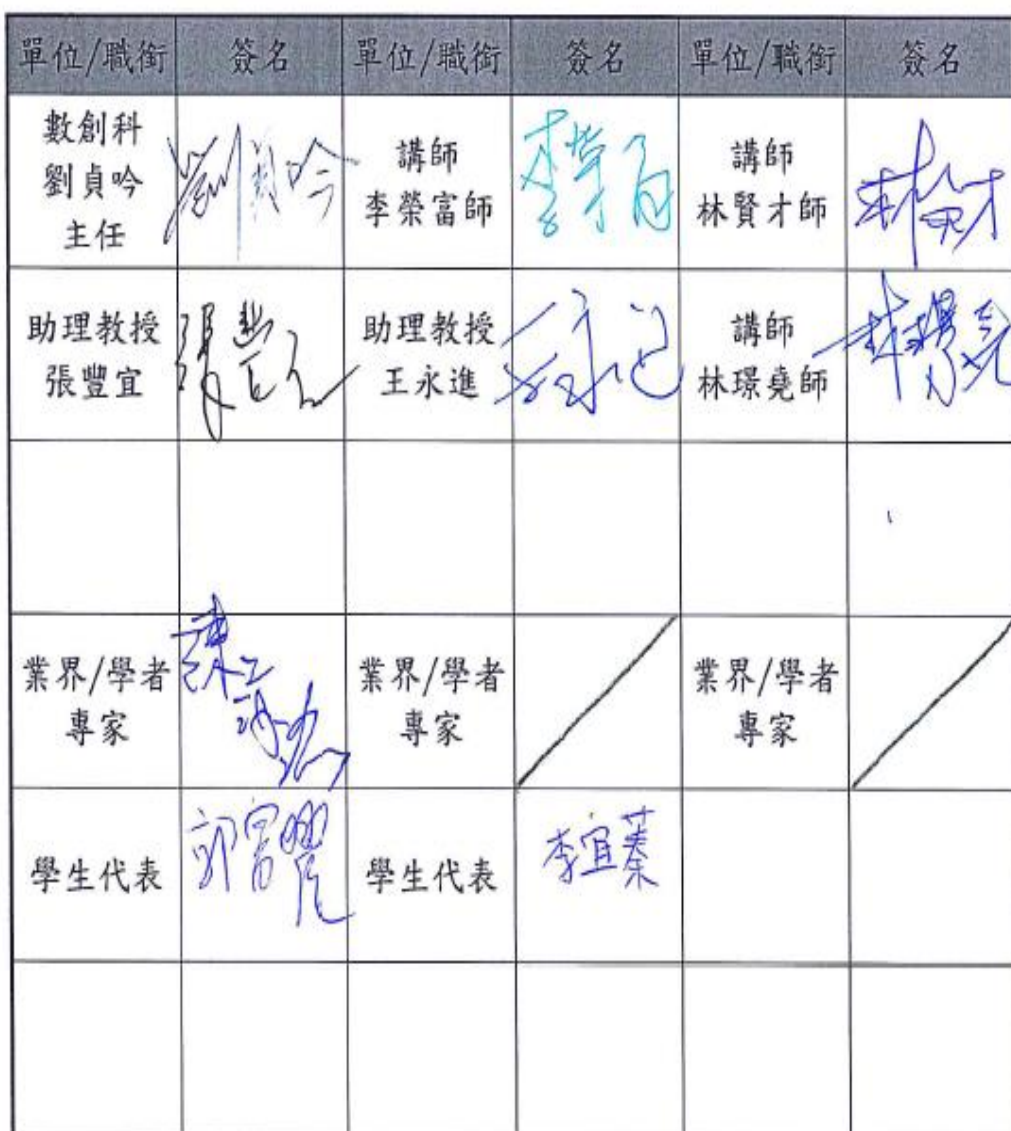 單位/職銜 簽名 單位/職銜 簽名 單位/職銜 簽名
數創科 劉貞吟 主任 劉貞吟 講師 李榮富師 李榮富 講師 林賢才師 林賢才
助理教授 張豐宜 張豐宜 助理教授 王永進 王永進 講師 林璟堯師 林璟堯
業界/學者 專家 業界/學者 專家 業界/學者 專家
學生代表 郭富 學生代表 李宜蓁